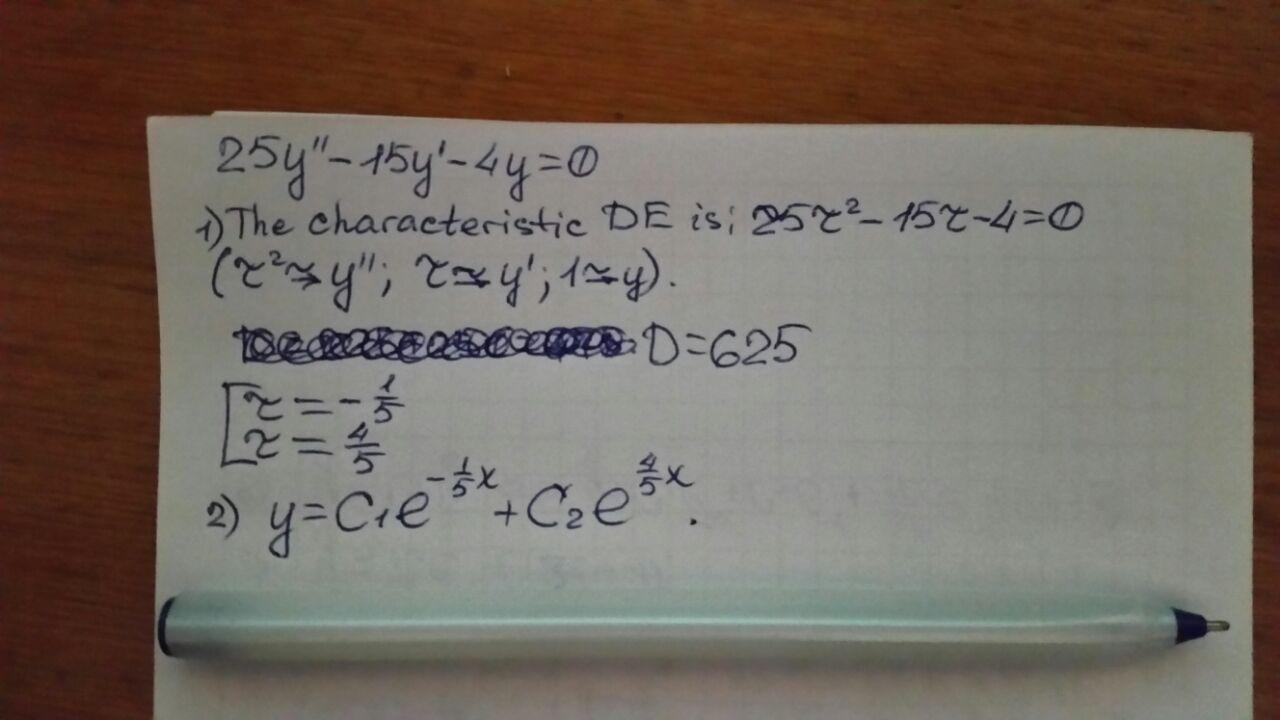 25y'' - 15y' - 4y = 0
1) The characteristic DE is: 25τ² - 15τ - 4 = 0
(τ² ⥲ y''; τ ⥲ y'; 1 ⥲ y).
D = 625
[τ = -1/5
τ = 4/5
2) y = C₁e^(-1/5 x) + C₂e^(4/5 x).